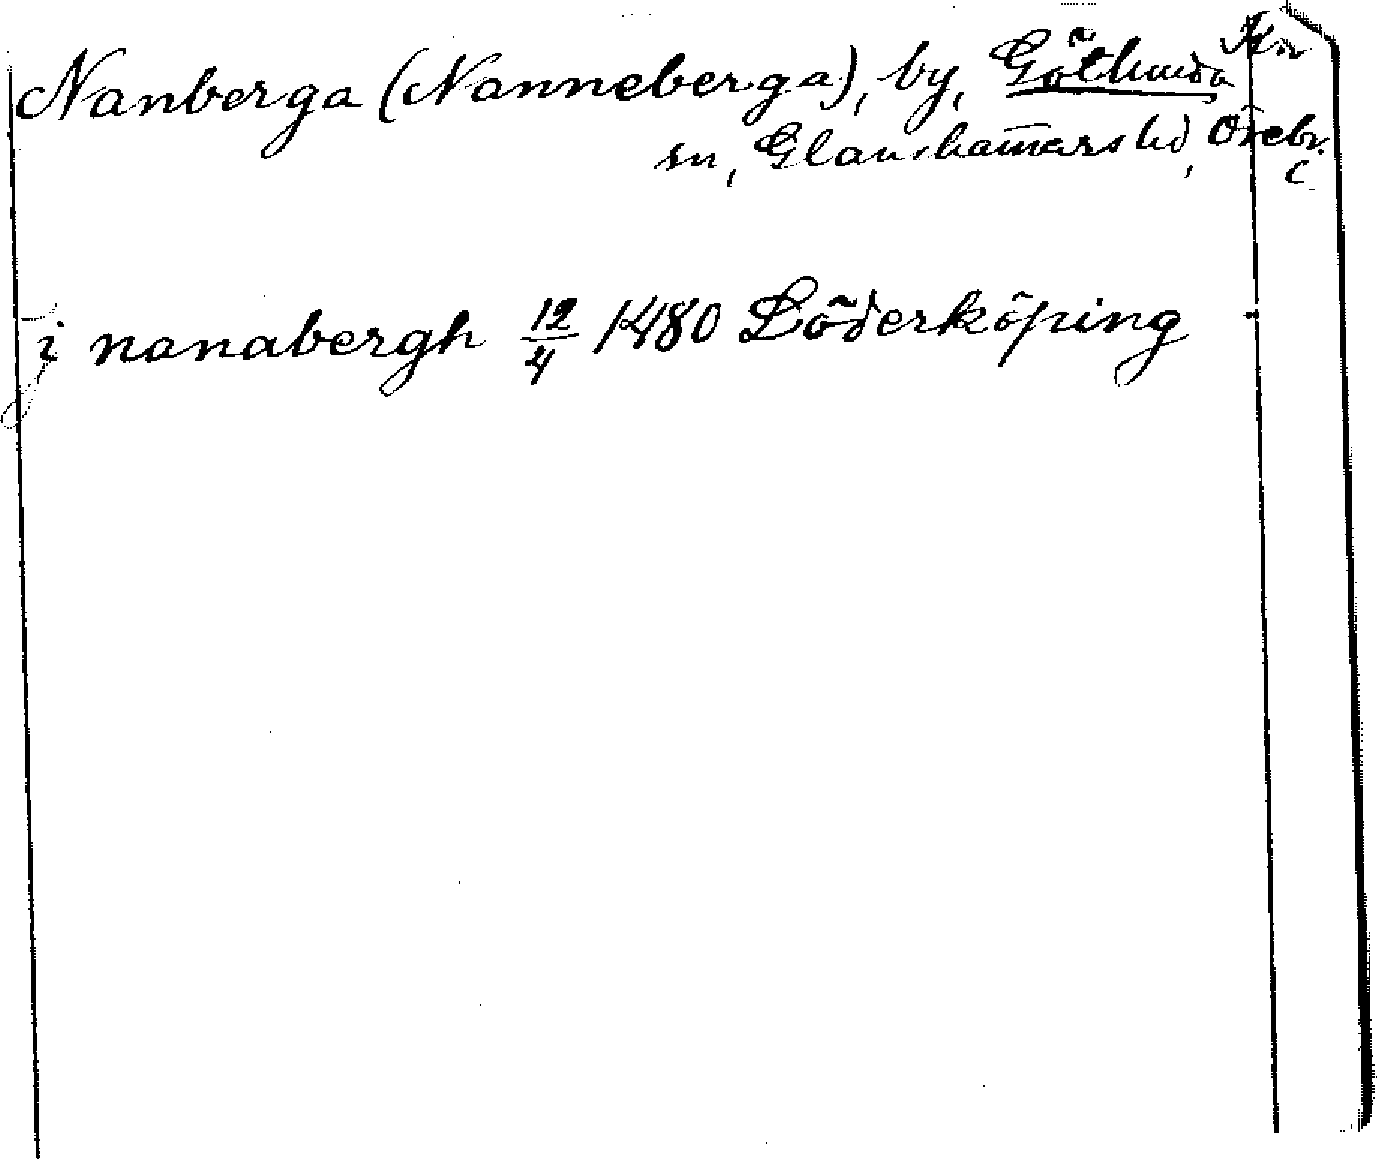 Nanberga (Nanneberga), by, Götlunda Kn
sn, Glanshamars hd, Örebr.
j nanabergh 12/4 1480 Söderköping